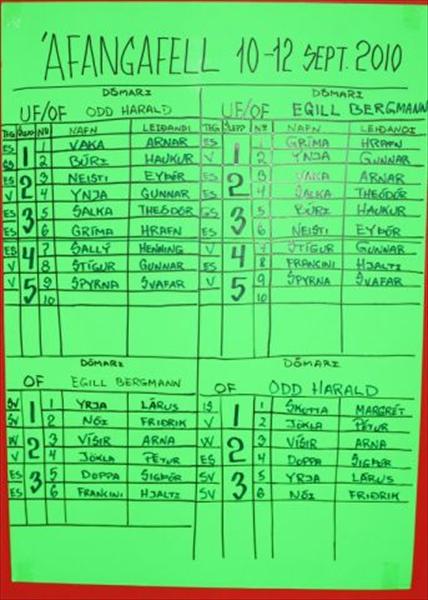 ÁFANGAFELL 10-12 SEPT. 2010
DÓMARI
UF/OF ODD HARALD
TEG SLEPP Nº NAFN LEIÐANDI
ES 1 1 VAKA ARNAR
GS 2 BÚRI HAUKUR
ES 2 3 NEISTI EYÞÓR
V 4 YNJA GUNNAR
ES 3 5 SALKA THEÓDÓR
ES 6 GRÍMA HRAFN
ES 4 7 SALLÝ HENNING
V 8 STÍGUR GUNNAR
V 5 9 SPYRNA SVAFAR
10
DÓMARI
UF/OF EGILL BERGMANN
TEG SLEPP Nº NAFN LEIÐANDI
ES 1 1 GRÍMA HRAFN
V 2 YNJA GUNNAR
ES 2 3 VAKA ARNAR
ES 4 SALKA THEÓDÓR
GS 3 5 BÚRI HAUKUR
ES 6 NEISTI EYÞÓR
V 4 7 STÍGUR GUNNAR
ES 8 FRANCINI HJALTI
V 5 9 SPYRNA SVAFAR
10
DÓMARI
OF EGILL BERGMANN
SV 1 1 YRJA LÁRUS
SV 2 NÓI FRIÐRIK
W 2 3 VÍSIR ARNA
V 4 JÖKLA PÉTUR
ES 3 5 DOPPA SIGÞÓR
ES 6 FRANCINI HJALTI
DÓMARI
OF ODD HARALD
IS 1 1 SKOTTA MARGRÉT
V 2 JÖKLA PÉTUR
W 2 3 VÍSIR ARNA
ES 4 DOPPA SIGÞÓR
SV 3 5 YRJA LÁRUS
SV 6 NÓI FRIÐRIK